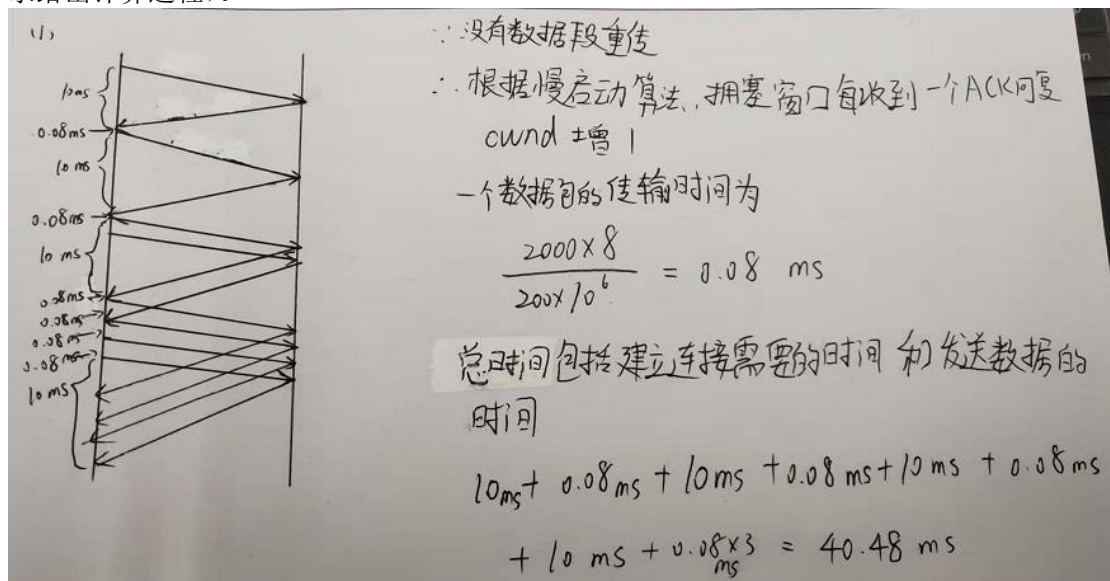 (1)
10ms
0.08ms
10 ms
0.08ms
10 ms
0.08ms
0.08ms
0.08ms
0.08ms
10 ms
∵ 没有数据段重传
∴ 根据慢启动算法,拥塞窗口每收到一个ACK回复
cwnd 增 1
一个数据包的传输时间为
2000×8
200×10⁶
= 0.08 ms
总时间包括建立连接需要的时间和发送数据的
时间
10ms + 0.08ms + 10ms + 0.08ms + 10ms + 0.08ms
+ 10 ms + 0.08×3 = 40.48 ms
ms